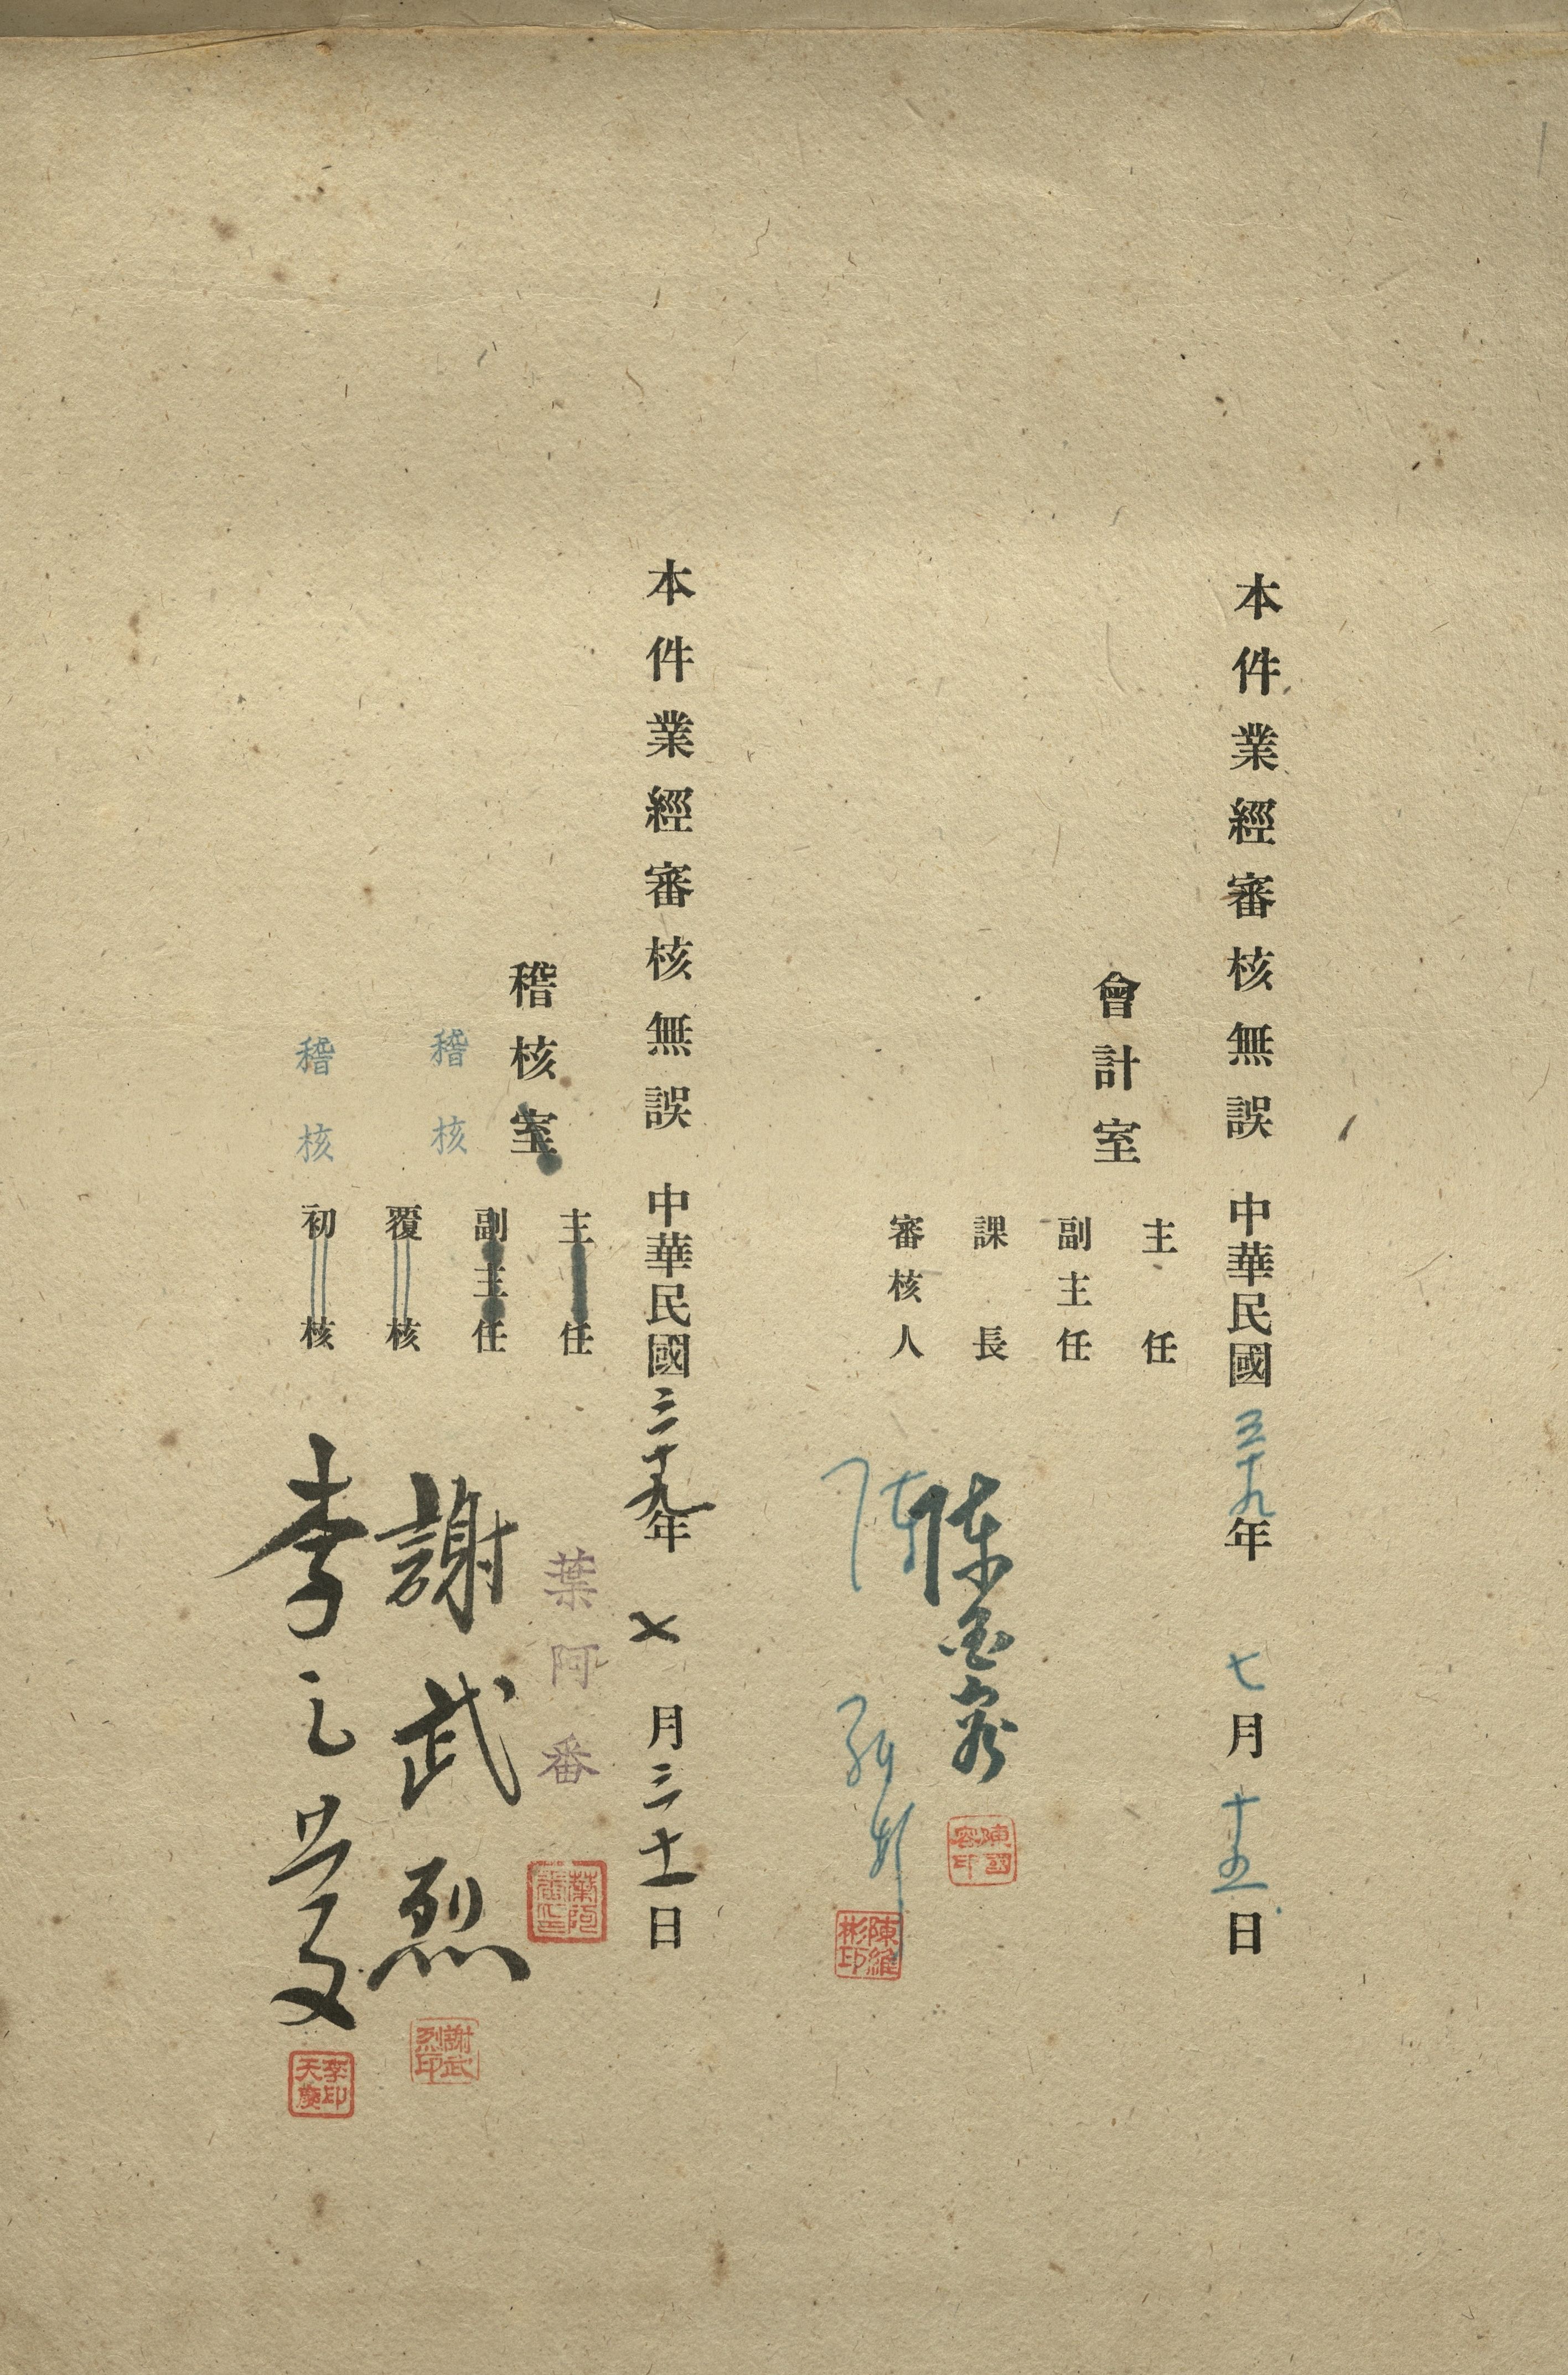 本件業經審核無誤
中華民國三十九年七月十五日
會計室
主任
副主任
課長
審核人
陳國容
陳國容印
陳維彬
陳維彬印
本件業經審核無誤
中華民國三十九年七月三十一日
稽核室
主任
副主任
稽核
覆核
稽核
初核
葉阿番
葉阿番印
謝武烈
謝武烈印
李天慶
李印天慶